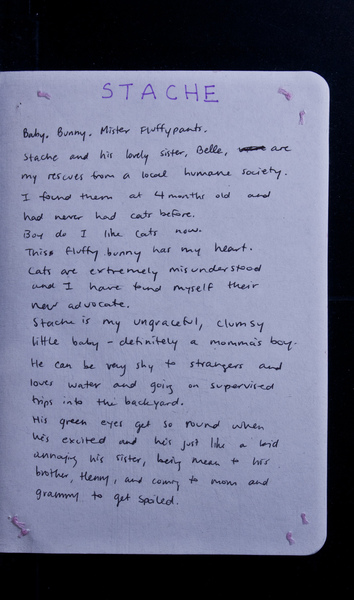 STACHE
Baby. Bunny. Mister Fluffypants.
Stache and his lovely sister, Belle, are
my rescues from a local humane society.
I found them at 4 months old and
had never had cats before.
Boy do I like cats now.
This fluffy bunny has my heart.
Cats are extremely misunderstood
and I have found myself their
new advocate.
Stache is my ungraceful, clumsy
little baby - definitely a momma's boy.
He can be very shy to strangers and
loves water and going on supervised
trips into the backyard.
His green eyes get so round when
he's excited and he's just like a kid
annoying his sister, being mean to his
brother, Henny, and coming to mom and
grammy to get spoiled.